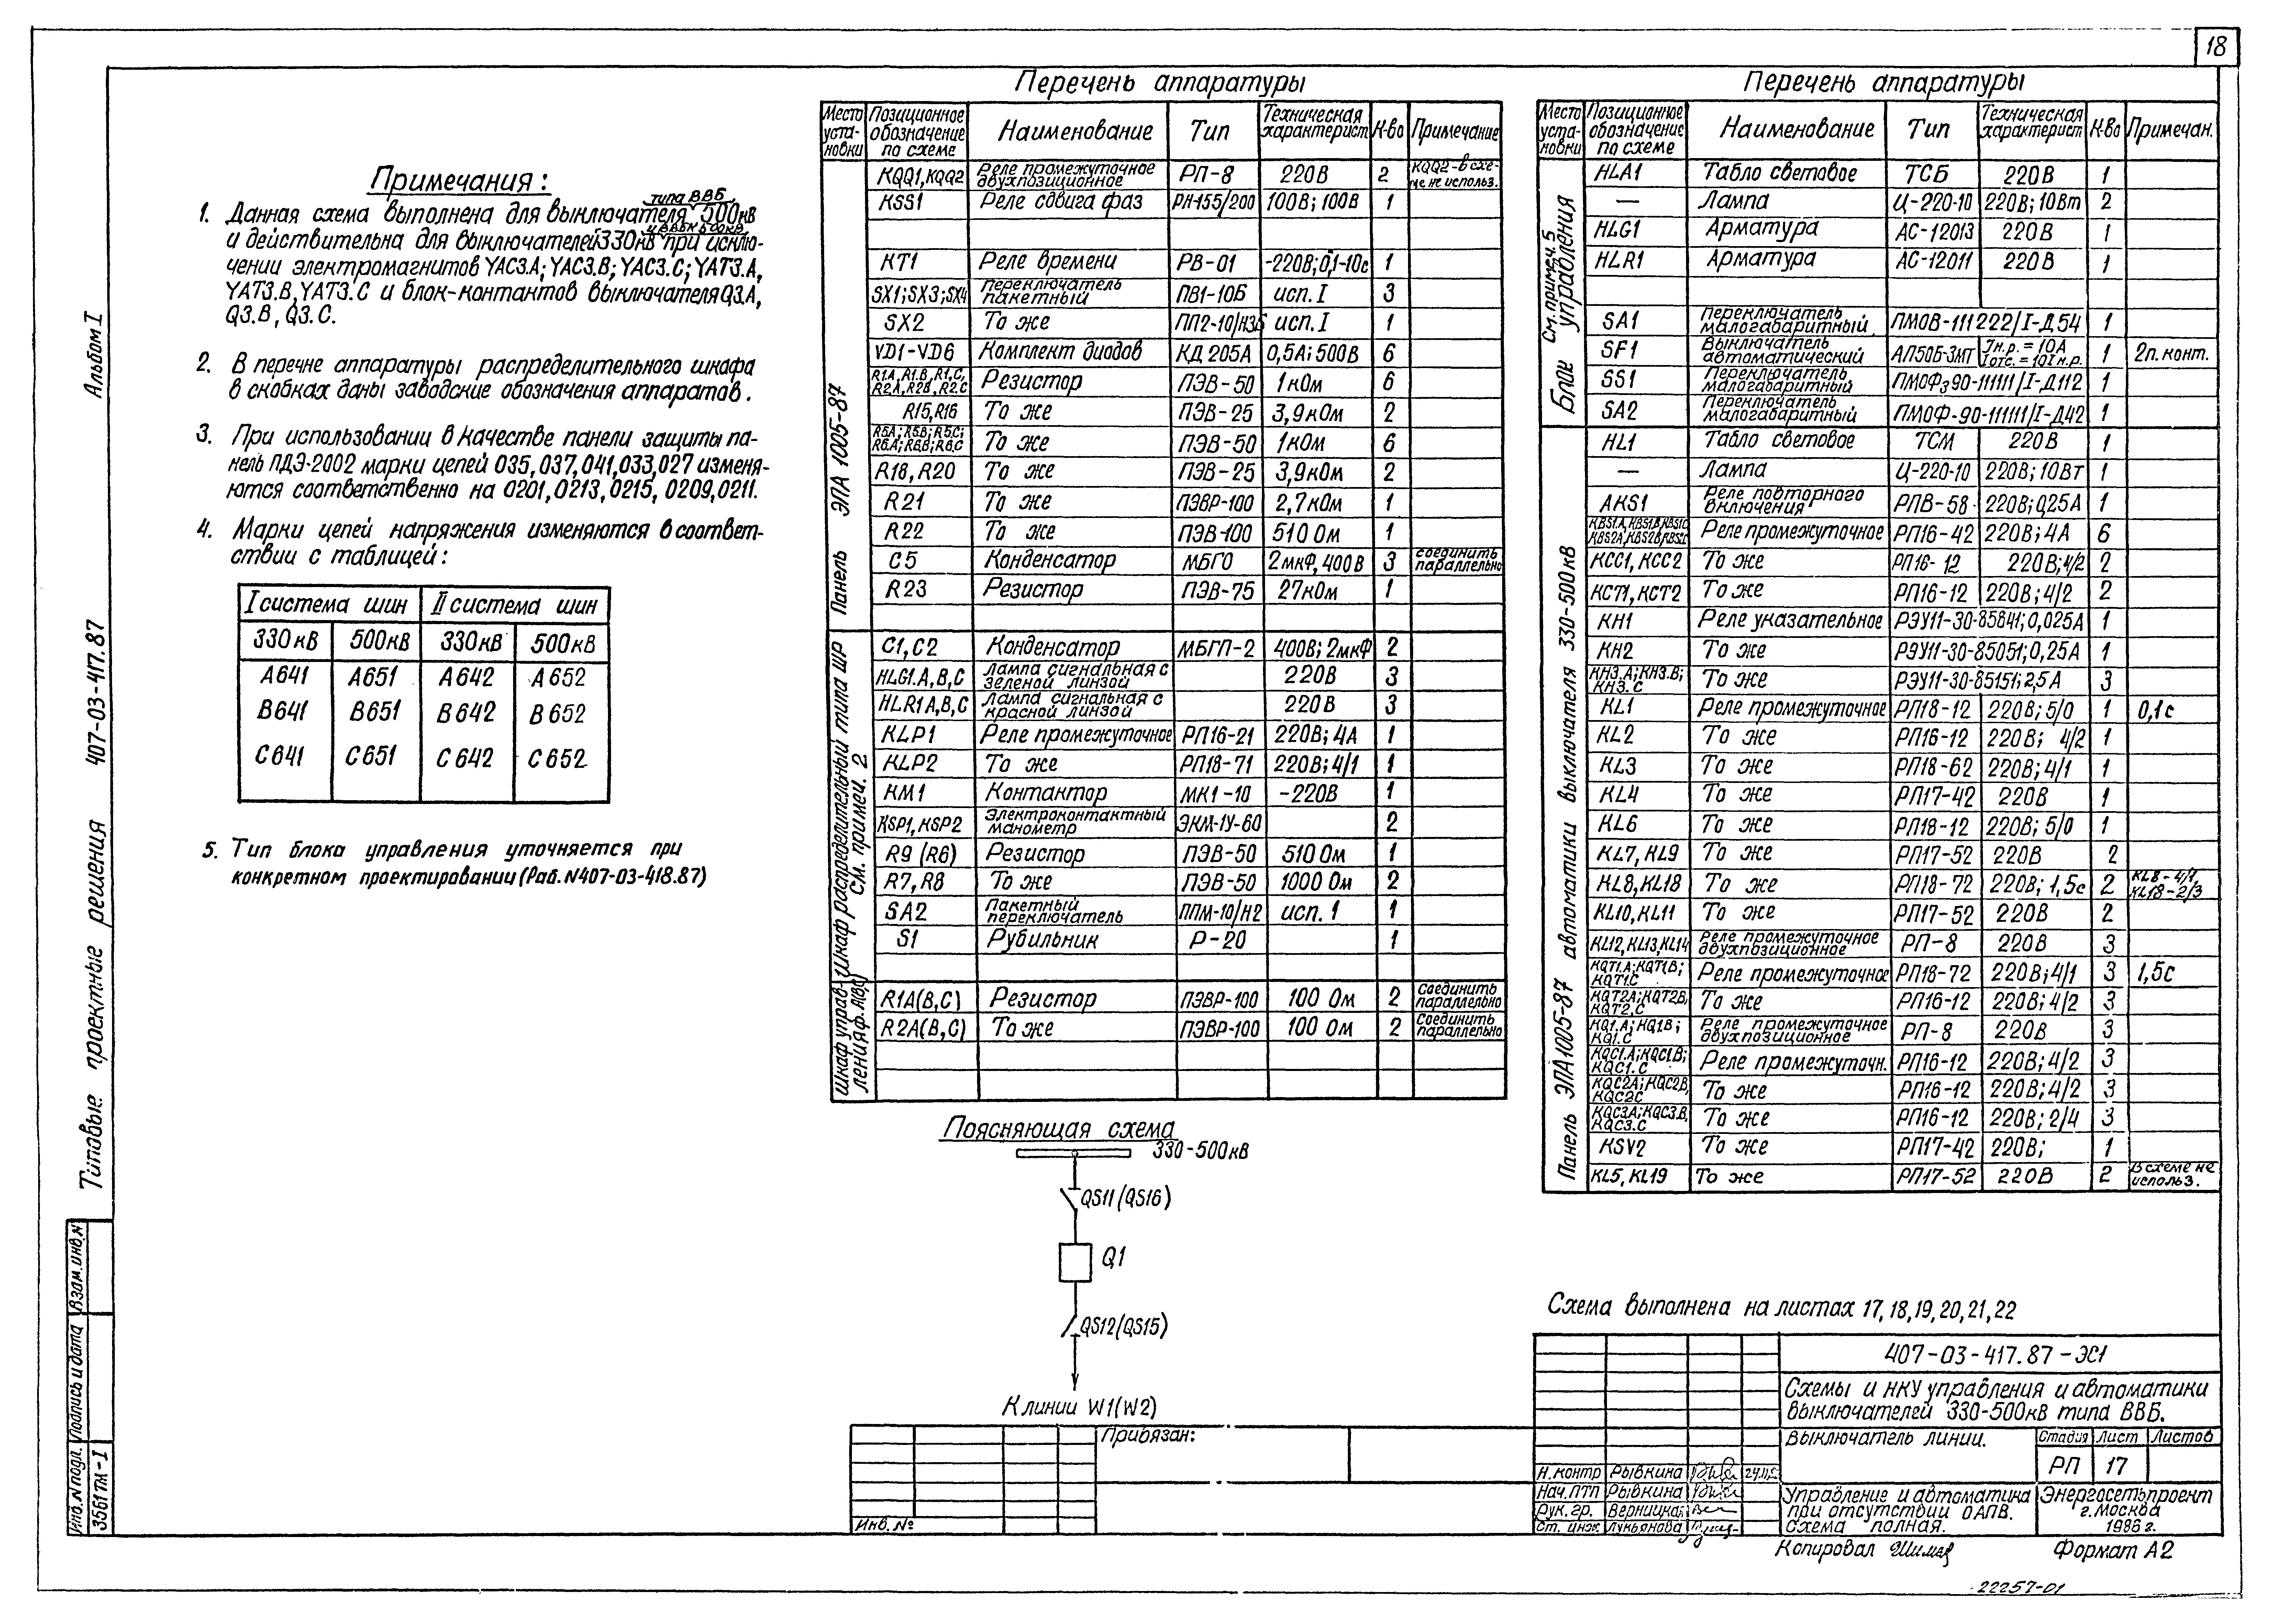 18
Альбом I
Типовые проектные решения 407-03-417.87
Примечания:
1. Данная схема выполнена для выключателя типа ВВБ 500кВ
и действительна для выключателей 330кВ и ВВБК 500кВ при исклю-
чении электромагнитов YAC3.A; YAC3.B; YAC3.C; YAT3.A,
YAT3.B, YAT3.C и блок-контактов выключателя Q3.A,
Q3.B, Q3.C.
2. В перечне аппаратуры распределительного шкафа
в скобках даны заводские обозначения аппаратов.
3. При использовании в качестве панели защиты па-
нель ПДЭ-2002 марки цепей 035,037,041,033,027 изменя-
ются соответственно на 0201,0213,0215, 0209,0211.
4. Марки цепей напряжения изменяются в соответ-
ствии с таблицей:
I система шин II система шин
330кВ 500кВ 330кВ 500кВ
A641 A651 A642 A652
B641 B651 B642 B652
C641 C651 C642 C652
5. Тип блока управления уточняется при
конкретном проектировании (Раб. N407-03-418.87)
Перечень аппаратуры
Место уста-новки Позиционное обозначение по схеме Наименование Тип Техническая характерист К-во Примечание
Панель ЭПА 1005-87
KQQ1, KQQ2 Реле промежуточное двухпозиционное РП-8 220В 2 KQQ2-в схе-ме не использ.
KSS1 Реле сдвига фаз РН-155/200 100В; 100В 1
KT1 Реле времени РВ-01 -220В; 0,1-10с 1
SX1; SX3; SX4 Переключатель пакетный ПВ1-10Б исп. I 3
SX2 То же ПП2-10/Н3Б исп. I 1
VD1-VD6 Комплект диодов КД 205А 0,5А; 500В 6
R1.A, R1.B, R1.C, R2.A, R2.B, R2.C Резистор ПЭВ-50 1кОм 6
R15, R16 То же ПЭВ-25 3,9кОм 2
R5.A; R5.B; R5.C; R6.A; R6.B; R6.C То же ПЭВ-50 1кОм 6
R18, R20 То же ПЭВ-25 3,9кОм 2
R21 То же ПЭВР-100 2,7кОм 1
R22 То же ПЭВ-100 510 Ом 1
C5 Конденсатор МБГО 2мкФ, 400В 3 соединить параллельно
R23 Резистор ПЭВ-75 27кОм 1
Шкаф распределительный типа ШР См. примеч. 2
C1, C2 Конденсатор МБГП-2 400В; 2мкФ 2
HLG1.A,B,C Лампа сигнальная с зеленой линзой 220В 3
HLR1 A,B,C Лампа сигнальная с красной линзой 220В 3
KLP1 Реле промежуточное РП16-21 220В; 4А 1
KLP2 То же РП18-71 220В; 4/1 1
KM1 Контактор МК1-10 -220В 1
KSP1, KSP2 Электроконтактный манометр ЭКМ-1У-60 2
R9 (R6) Резистор ПЭВ-50 510 Ом 1
R7, R8 То же ПЭВ-50 1000 Ом 2
SA2 Пакетный переключатель ППМ-10/Н2 исп. 1 1
S1 Рубильник Р-20 1
Шкаф управ-ления ф. А(В,С)
R1A(B,C) Резистор ПЭВР-100 100 Ом 2 Соединить параллельно
R2A(B,C) То же ПЭВР-100 100 Ом 2 Соединить параллельно
Перечень аппаратуры
Место уста-новки Позиционное обозначение по схеме Наименование Тип Техническая характерист К-во Примечан.
Блок управления См. примеч. 5
HLA1 Табло световое ТСБ 220В 1
— Лампа Ц-220-10 220В; 10Вт 2
HLG1 Арматура АС-12013 220В 1
HLR1 Арматура АС-12011 220В 1
SA1 Переключатель малогабаритный ПМОВ-111222/I-Д54 1
SF1 Выключатель автоматический АП50Б-3МТ Iн.р.=10А Iотс.=10Iн.р. 1 2п. конт.
SS1 Переключатель малогабаритный ПМОФз90-111111/I-Д112 1
SA2 Переключатель малогабаритный ПМОФ-90-111111/I-Д42 1
Панель ЭПА1005-87 автоматики выключателя 330-500кВ
HL1 Табло световое ТСМ 220В 1
— Лампа Ц-220-10 220В; 10Вт 1
AKS1 Реле повторного включения РПВ-58 220В; 0,25А 1
KBS1.A, KBS1B, KBS1C KBS2A, KBS2B, KBS2C Реле промежуточное РП16-42 220В; 4А 6
KCC1, KCC2 То же РП16-12 220В; 4/2 2
KCT1, KCT2 То же РП16-12 220В; 4/2 2
KH1 Реле указательное РЭУ11-30-85641; 0,025А 1
KH2 То же РЭУ11-30-85051; 0,25А 1
KH3.A; KH3.B; KH3.C То же РЭУ11-30-85151; 2,5А 3
KL1 Реле промежуточное РП18-12 220В; 5/0 1 0,1с
KL2 То же РП16-12 220В; 4/2 1
KL3 То же РП18-62 220В; 4/1 1
KL4 То же РП17-42 220В 1
KL6 То же РП18-12 220В; 5/0 1
KL7, KL9 То же РП17-52 220В 2
KL8, KL18 То же РП18-72 220В; 1,5с 2 KL8-4/1, KL18-2/3
KL10, KL11 То же РП17-52 220В 2
KL12, KL13, KL14 Реле промежуточное двухпозиционное РП-8 220В 3
KQT1.A; KQT1B; KQT1.C Реле промежуточное РП18-72 220В; 4/1 3 1,5с
KQT2A; KQT2B, KQT2,C То же РП16-12 220В; 4/2 3
KQ1.A; KQ1B; KQ1.C Реле промежуточное двухпозиционное РП-8 220В 3
KQC1.A; KQC1B; KQC1.C Реле промежуточн. РП16-12 220В; 4/2 3
KQC2A; KQC2B, KQC2C То же РП16-12 220В; 4/2 3
KQC3A; KQC3.B, KQC3.C То же РП16-12 220В; 2/4 3
KSV2 То же РП17-42 220В; 1
KL5, KL19 То же РП17-52 220В 2 В схеме не использ.
Поясняющая схема
330-500кВ
QS11 (QS16)
Q1
QS12 (QS15)
К линии W1(W2)
Схема выполнена на листах 17,18,19,20,21,22
Привязан:
Инв. №
407-03-417.87-ЭС1
Схемы и НКУ управления и автоматики
выключателей 330-500кВ типа ВВБ.
Выключатель линии.
Стадия Лист Листов
РП 17
Н.контр Рывкина
Нач.ПТП Рывкина
Рук. гр. Верницкая
Ст. инж Лукьянова
Управление и автоматика
при отсутствии ОАПВ.
Схема полная.
Энергосетьпроект
г. Москва
1986 г.
Копировал
Формат А2
22257-01
Взам. инв. N
Подпись и дата
Инв. N подл. 3561ТМ-I